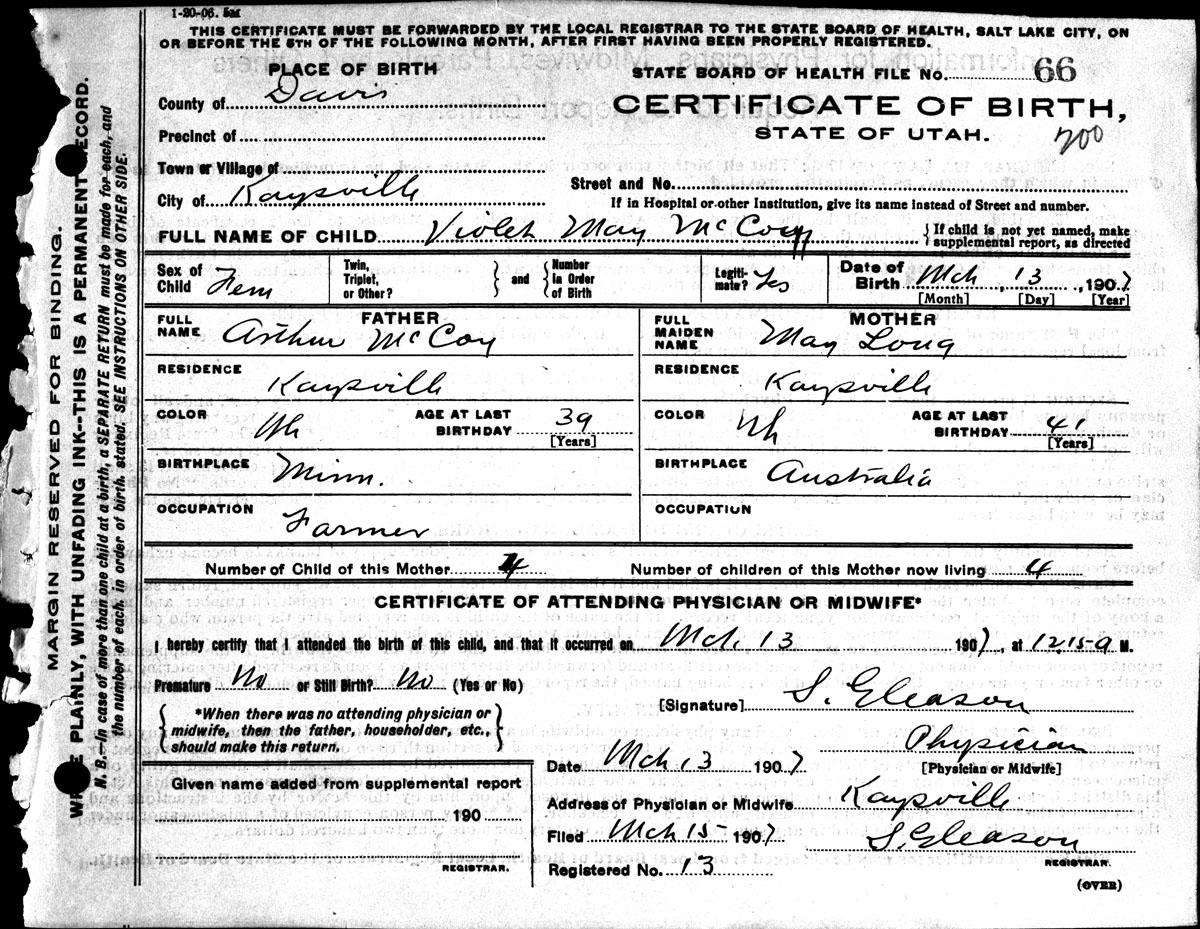 1-20-06. 5M
THIS CERTIFICATE MUST BE FORWARDED BY THE LOCAL REGISTRAR TO THE STATE BOARD OF HEALTH, SALT LAKE CITY, ON
OR BEFORE THE 5TH OF THE FOLLOWING MONTH, AFTER FIRST HAVING BEEN PROPERLY REGISTERED.
PLACE OF BIRTH
STATE BOARD OF HEALTH FILE No. 66
County of Davis
CERTIFICATE OF BIRTH,
STATE OF UTAH.
200
Precinct of
Town or Village of
Street and No.
City of Kaysville
If in Hospital or other Institution, give its name instead of Street and number.
FULL NAME OF CHILD Violet May McCoy { If child is not yet named, make
supplemental report, as directed
Sex of Child Fem
Twin, Triplet, or Other? } and { Number in Order of Birth
Legiti- mate? Yes
Date of Birth Mch 13, 1907
[Month] [Day] [Year]
FATHER
FULL NAME Arthur McCoy
RESIDENCE Kaysville
COLOR Wh AGE AT LAST BIRTHDAY 39
[Years]
BIRTHPLACE Minn.
OCCUPATION Farmer
MOTHER
FULL MAIDEN NAME May Long
RESIDENCE Kaysville
COLOR Wh AGE AT LAST BIRTHDAY 41
[Years]
BIRTHPLACE Australia
OCCUPATION
Number of Child of this Mother 4 Number of children of this Mother now living 4
CERTIFICATE OF ATTENDING PHYSICIAN OR MIDWIFE*
I hereby certify that I attended the birth of this child, and that it occurred on Mch. 13 1907, at 1215 a M.
Premature No or Still Birth? No (Yes or No)
[Signature] S. Gleason
{ *When there was no attending physician or
midwife, then the father, householder, etc.,
should make this return. }
Physician
Date Mch 13 1907 [Physician or Midwife]
Given name added from supplemental report
190
REGISTRAR.
Address of Physician or Midwife Kaysville
Filed Mch 15 1907 S. Gleason
REGISTRAR.
Registered No. 13
(OVER)
MARGIN RESERVED FOR BINDING.
PLAINLY, WITH UNFADING INK--THIS IS A PERMANENT RECORD.
N. B.--In case of more than one child at a birth, a SEPARATE RETURN must be made for each, and
the number of each, in order of birth, stated. SEE INSTRUCTIONS ON OTHER SIDE.